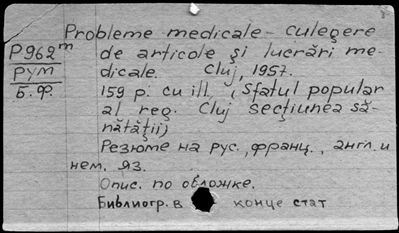 Probleme medicale - culegere
P962m de articole şi lucrări me-
РУМ dicale. Cluj, 1957.
Б.Ф. 159 p. cu ill. (Sfatul popular
al reg. Cluj secţiunea să-
nătăţii)
Резюме на рус., франц., англ. и
нем. яз.
Опис. по обложке.
Библиогр. в конце стат